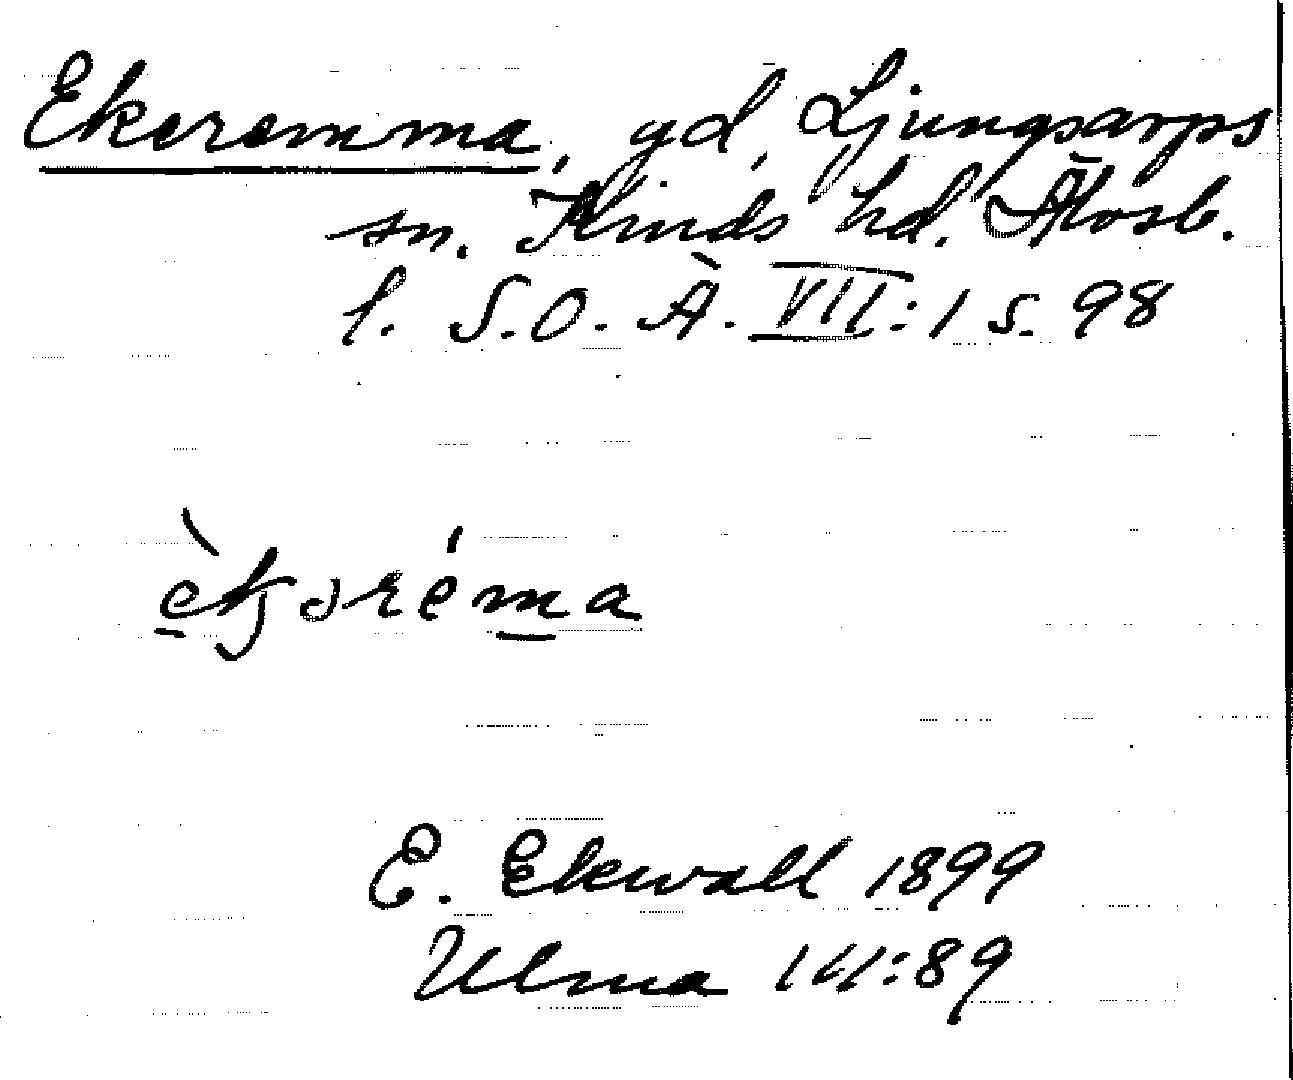 Ekeremma, gd, Ljungsarps
sn. Kinds hd. Älvsb.
l. S.O.Ä. VII:1 s. 98
èkjəréma
E. Ekwall 1899
Ulma 141:89